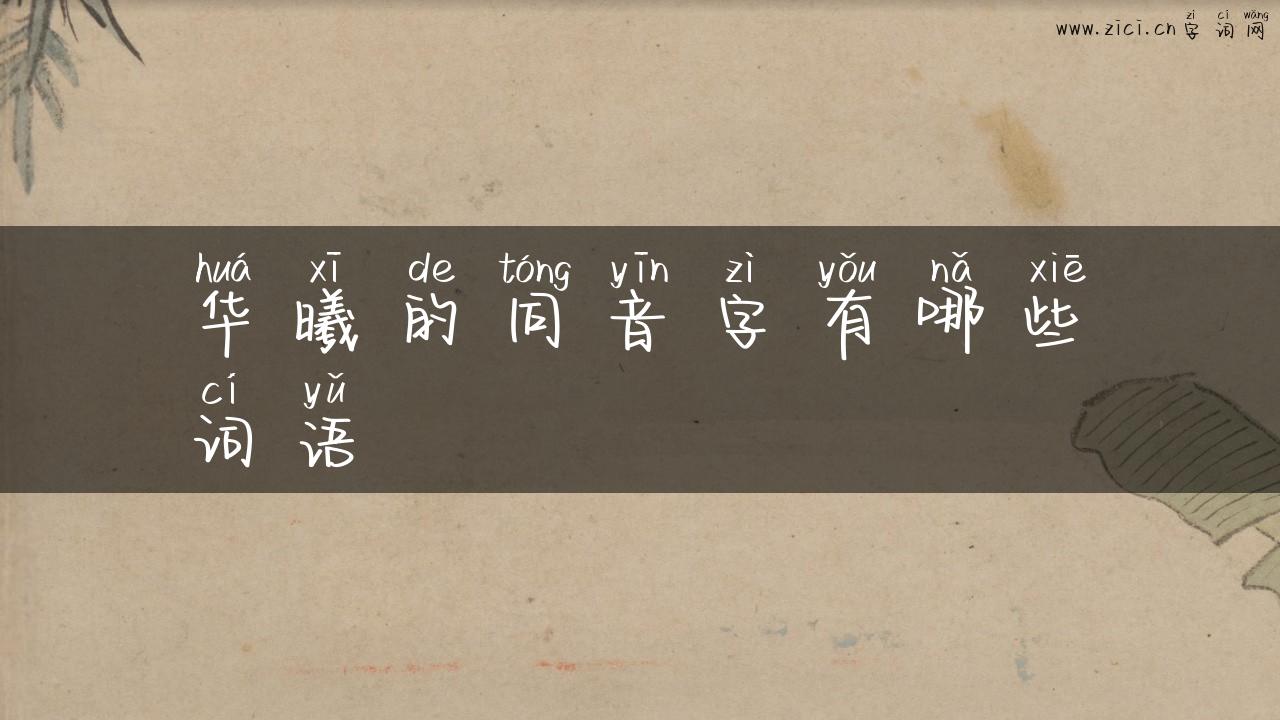 zì cí wǎng
www.zici.cn 字 词 网
huá xī de tóng yīn zì yǒu nǎ xiē
华 曦 的 同 音 字 有 哪 些
cí yǔ
词 语